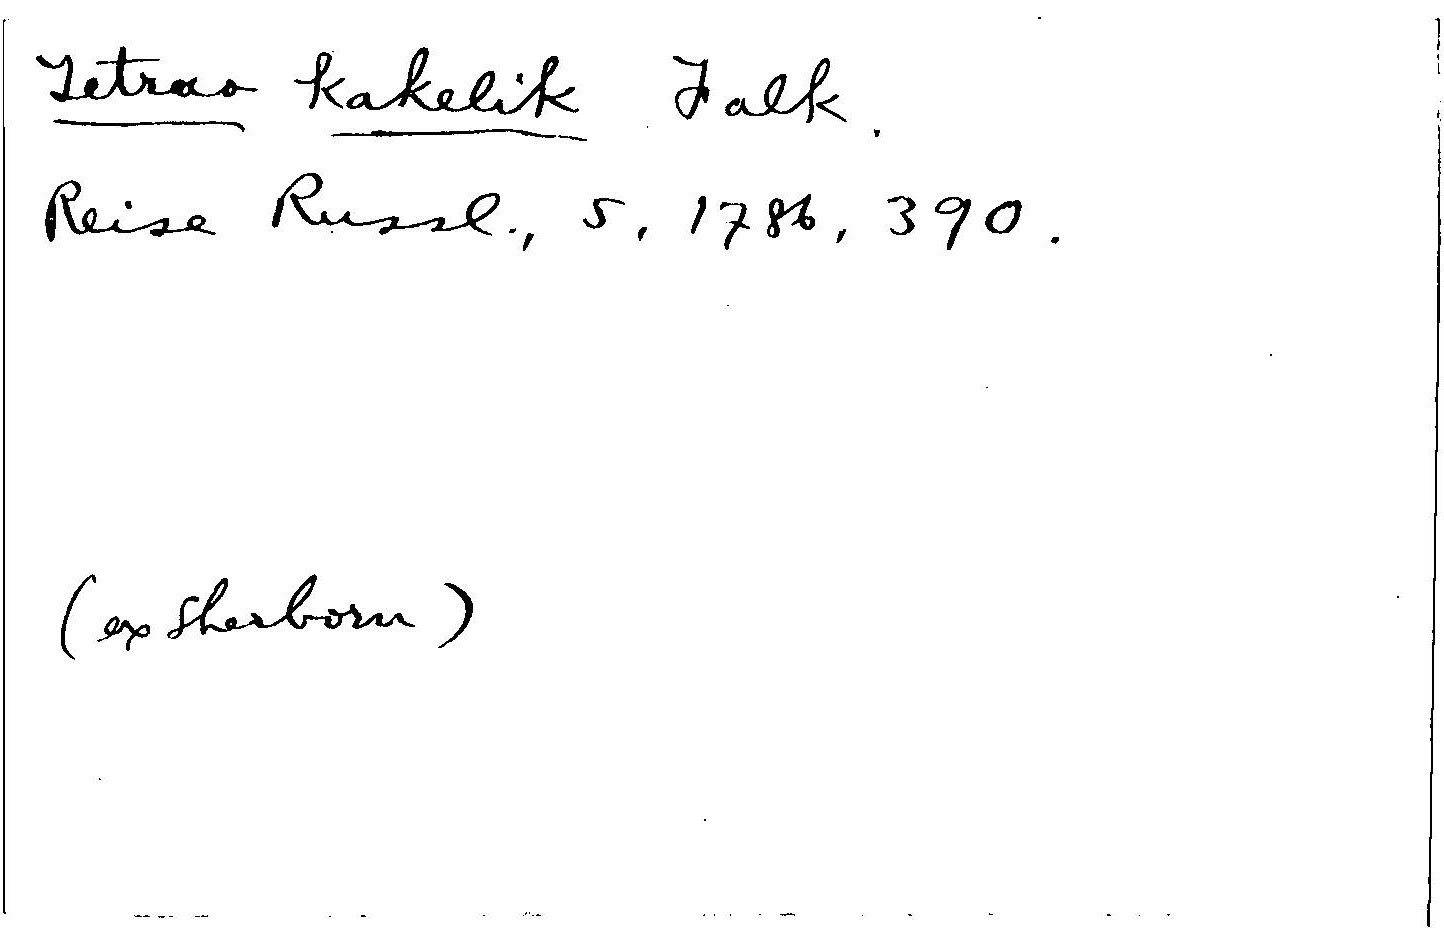 Tetrao kakelik Falk.
Reise Russl., 5, 1786, 390.
(ex Sherborn)